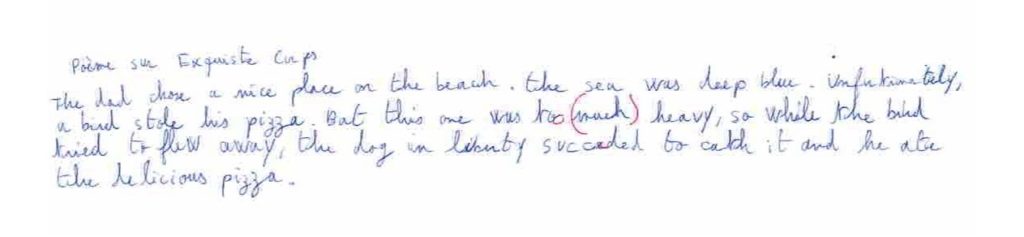 Poème sur Exquiste Corps
The dad chose a nice place on the beach. the sea was deep blue. Unfortunately,
a bird stole his pizza. But this one was too (much) heavy, so while the bird
tried to flew away, the dog in liberty succeded to catch it and he ate
the delicious pizza.